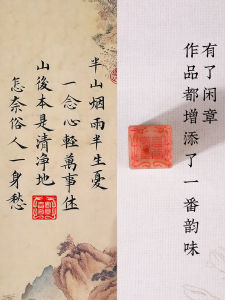 有了闲章
作品都增添了一番韵味
半山烟雨半生憂
一念心輕萬事休
山後本是清净地
怎奈俗人一身愁